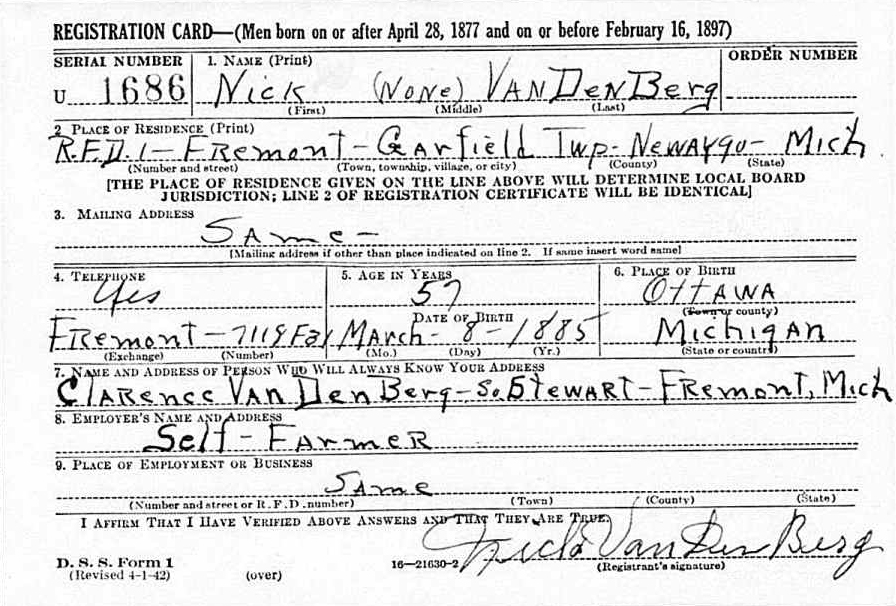 REGISTRATION CARD—(Men born on or after April 28, 1877 and on or before February 16, 1897)
SERIAL NUMBER 1. NAME (Print) ORDER NUMBER
U 1686 Nick (None) VanDenBerg
(First) (Middle) (Last)
2. PLACE OF RESIDENCE (Print)
R.F.D. 1 – Fremont – Garfield Twp – Newaygo – Mich
(Number and street) (Town, township, village, or city) (County) (State)
[THE PLACE OF RESIDENCE GIVEN ON THE LINE ABOVE WILL DETERMINE LOCAL BOARD
JURISDICTION; LINE 2 OF REGISTRATION CERTIFICATE WILL BE IDENTICAL]
3. MAILING ADDRESS
Same –
[Mailing address if other than place indicated on line 2. If same insert word same]
4. TELEPHONE 5. AGE IN YEARS 6. PLACE OF BIRTH
Yes 57 Ottawa
DATE OF BIRTH (Town or county)
Fremont – 7119F21 March – 8 – 1885 Michigan
(Exchange) (Number) (Mo.) (Day) (Yr.) (State or country)
7. NAME AND ADDRESS OF PERSON WHO WILL ALWAYS KNOW YOUR ADDRESS
Clarence Van Den Berg – So. Stewart – Fremont, Mich
8. EMPLOYER'S NAME AND ADDRESS
Self – Farmer
9. PLACE OF EMPLOYMENT OR BUSINESS
Same
(Number and street or R. F. D. number) (Town) (County) (State)
I AFFIRM THAT I HAVE VERIFIED ABOVE ANSWERS AND THAT THEY ARE TRUE.
D. S. S. Form 1 16—21630-2 Nick Van Den Berg
(Revised 4-1-42) (over) (Registrant's signature)